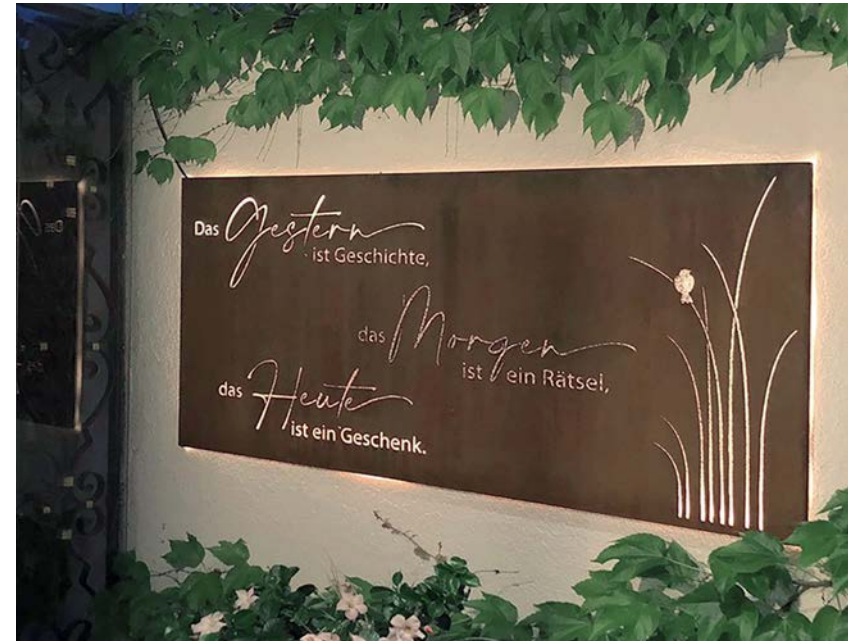 Das Gestern
ist Geschichte,
das Morgen
ist ein Rätsel,
das Heute
ist ein Geschenk.